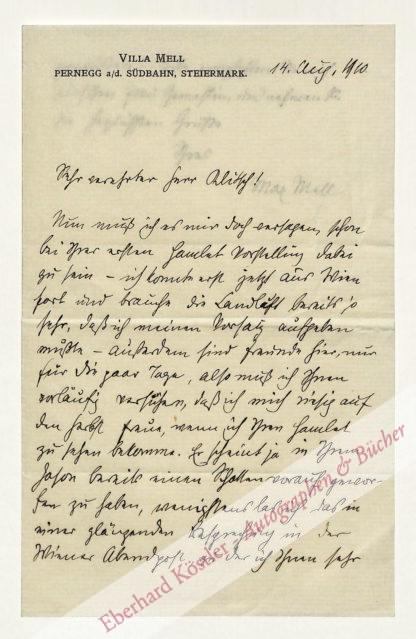 VILLA MELL
PERNEGG a/d. SÜDBAHN, STEIERMARK.
14. Aug. 1910.
Sehr verehrter Herr
Max Mell
Nun muß ich es mir doch versagen, schon
bei Ihrer ersten Hamlet Vorstellung dabei
zu sein – ich konnte erst jetzt aus Wien
fort und brauche die Landluft bereits so
sehr, daß ich meinen Vorsatz aufgeben
mußte – außerdem sind Freunde hier, nur
für die paar Tage, also muß ich Ihnen
vorläufig versichern, daß ich mich riesig auf
den Herbst freue, wenn ich Ihren Hamlet
zu sehen bekomme. Er scheint ja in Ihrem
Jason bereits einen Schatten vorausgewor-
fen zu haben, wenigstens las ich das in
einer glänzenden Besprechung in der
Wiener Abendpost, zu der ich Ihnen sehr
Eberhard Köstler Autographen & Bücher